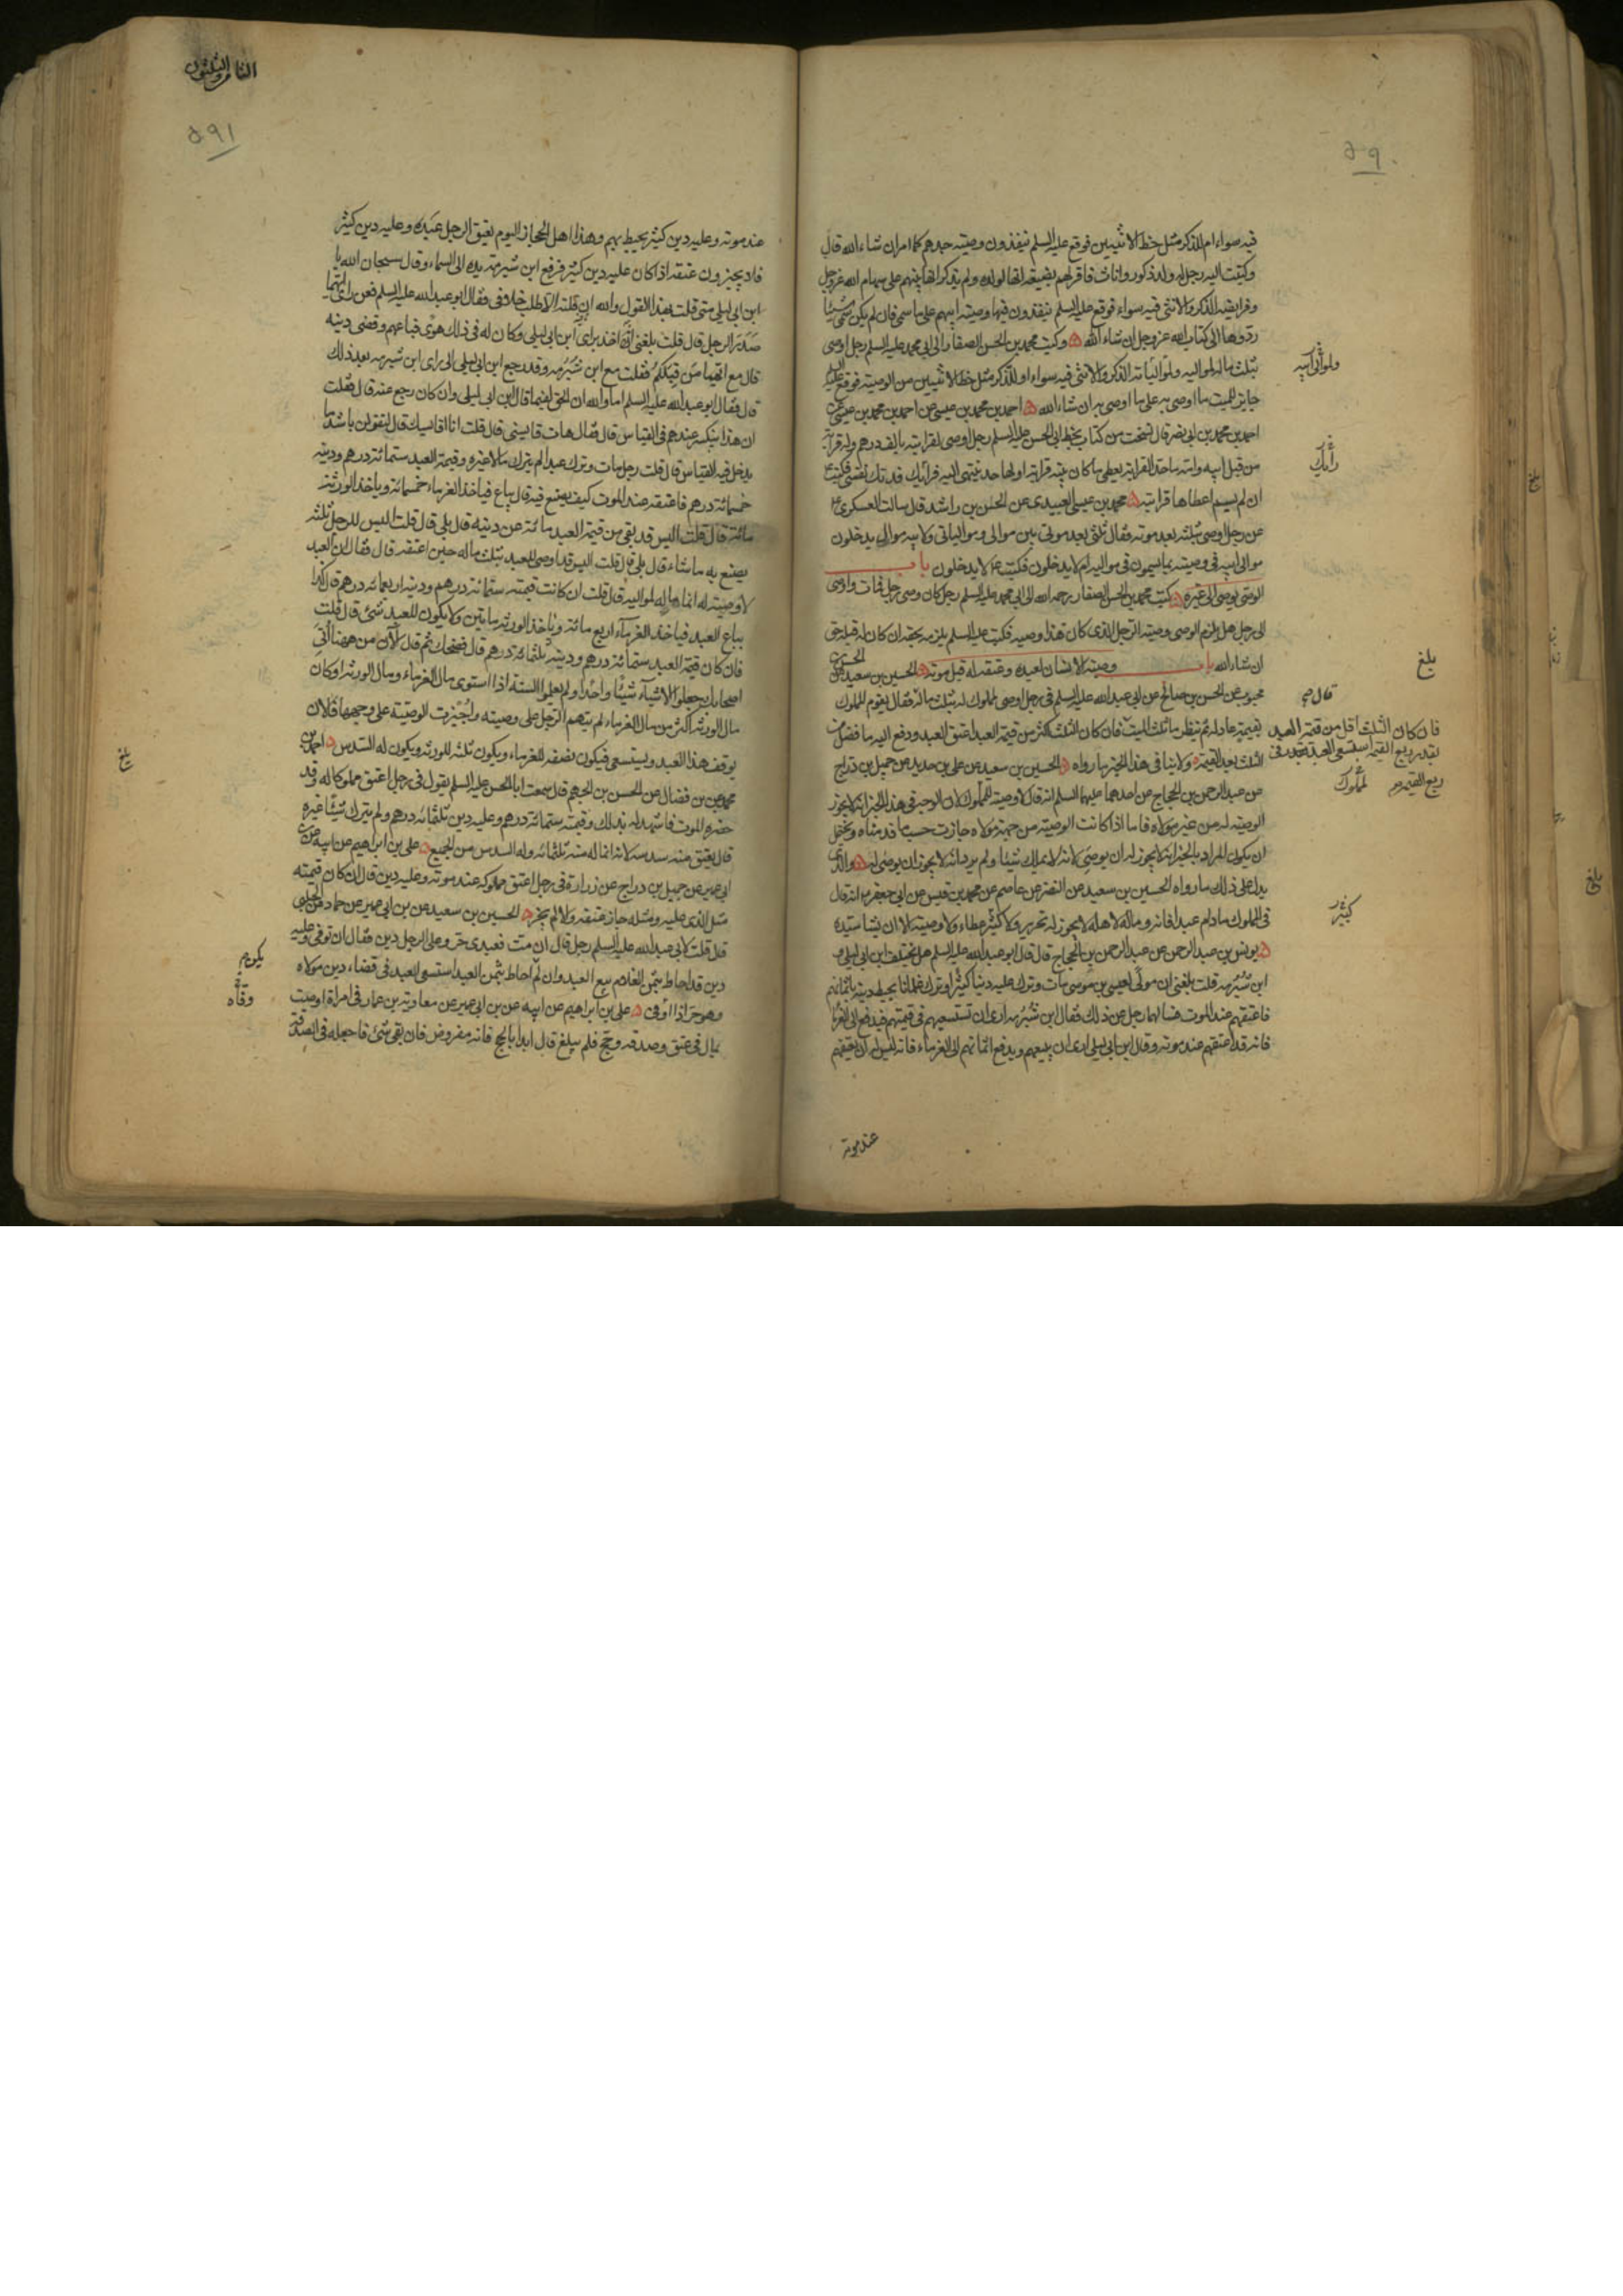 ٥٩٠
فيه سواء ام للذكر مثل حظ الانثيين فوقع عليه السلم ينفذون وصية جدهم كما امر ان شاء الله قال
وكتبت اليه رجل له ولد ذكور واناث فاقر لهم بضيعة انها لولده ولم يذكر انها بينهم على سهام الله عز وجل
وفرايضه الذكر والانثى فيه سواء فوقع عليه السلم ينفذون فيها وصية ابيهم على ما سمى فان لم يكن سمى شيئا
ردوها الى كتاب الله عز وجل ان شاء الله ه وكتب محمد بن الحسن الصفار الى ابى محمد عليه السلم رجل اوصى
بثلث ماله لمواليه ولمولياته الذكر والانثى فيه سواء او للذكر مثل حظ الانثيين من الوصية فوقع عليه السلم
جايز للميت ما اوصى به على ما اوصى به ان شاء الله ه احمد بن محمد بن عيسى عن احمد بن محمد بن عيسى عن
احمد بن محمد بن ابى نصر قال نسخت من كتاب بخط ابى الحسن عليه السلم رجل اوصى لقرابته بالف درهم وله قرابة
من قبل ابيه وامه ما حد القرابة يعطى ما كان بينه قرابة او لها حد ينتهى اليه فرأيك فدتك نفسى فكتب ع
ان لم يسم اعطاها قرابته ه محمد بن عيسى العبيدى عن الحسن بن راشد قال سالت العسكرى ع
عن رجل اوصى بثلثه بعد موته فقال ثلثى بعد موتى بين موالى وموالياتى ولابيه موالى يدخلون
موالى ابيه فى وصيته بما يسمون فى مواليه ام لا يدخلون فكتب ع لا يدخلون باب
الوصى يوصى الى غيره ه كتب محمد بن الحسن الصفار رحمه الله الى ابى محمد عليه السلم رجل كان وصى رجل فمات واوصى
الى رجل هل يلزم الوصى وصية الرجل الذى كان هذا وصيه فكتب عليه السلم يلزمه بحقه ان كان له قبله حق
ان شاء الله باب وصية الانسان لعبده وعتقه له قبل موته ه الحسين بن سعيد عن الحسن بن
محبوب عن الحسن بن صالح عن ابى عبد الله عليه السلم فى رجل اوصى لمملوك له بثلث ماله فقال يقوم المملوك
بقيمة عادلة ثم ينظر ما ثلث الميت فان كان الثلث اكثر من قيمة العبد اعتق العبد ودفع اليه ما فضل من
الثلث بعد القيمة ولا ينافى هذا الخبر ما رواه ه الحسين بن سعيد عن على بن حديد عن جميل بن دراج
عن عبد الرحمن بن الحجاج عن احدهما عليهما السلم انه قال لا وصية لمملوك لان الوجه فى هذا الخبر انه لا يجوز
الوصية له من غير مولاه فاما اذا كانت الوصية من جهة مولاه جازت حسب ما قدمناه ويحتمل
ان يكون المراد بالخبر انه لا يجوز له ان يوصى لانه لا يملك شيئا ولم يرد انه لا يجوز ان يوصى له ه والذى
يدل على ذلك ما رواه الحسين بن سعيد عن النضر عن عاصم عن محمد بن قيس عن ابى جعفر ع انه قال
فى المملوك ما دام عبدا فانه وماله لاهله لا يجوز له تحرير ولا كثير عطاء ولا وصية الا ان يشا سيده
ه يونس بن عبد الرحمن عن عبد الرحمن بن الحجاج قال قال ابو عبد الله عليه السلم هل يختلف ابن ابى ليلى و
ابن شبرمه قلت بلغنى ان مولى لعيسى بن موسى مات وترك عليه دينا كثيرا وترك غلمانا يحيط دينه باثمانهم
فاعتقهم عند الموت فسالهما رجل عن ذلك فقال ابن شبرمه ارى ان تستسعيهم فى قيمتهم فيدفع الى الغرما
فانه قد اعتقهم عند موته وقال ابن ابى ليلى ارى ان يبيعهم ويدفع اثمانهم الى الغرماء فانه ليس له ان يعتقهم
عند موته
ولموالى ابيه
رأيك
بلغ
قال ص
فان كان الثلث اقل من قيمة العبد
بقدر ربع القيمة استسعى العبد فى
ربع القيمة ص
لمملوك
كثير
بلغ
بلغ
الثامن والثلثون
٥٩١
عند موته وعليه دين كثير يحيط بهم وهذا اهل الحجاز اليوم يعتق الرجل عبده وعليه دين كثير
فلا يجيزون عتقه اذا كان عليه دين كثير فرفع ابن شبرمه يده الى السماء وقال سبحان الله يا
ابن ابى ليلى متى قلت بهذا القول والله ان قلته الا طلب خلافى فقال ابو عبد الله عليه السلم فعن راى ايهما
صدر الرجل قال قلت بلغنى انه اخذ براى ابن ابى ليلى وكان له فى ذلك هوى فباعهم وقضى دينه
قال مع ايهما من قبلكم فقلت مع ابن شبرمه وقد رجع ابن ابى ليلى الى راى ابن شبرمه بعد ذلك
قال فقال ابو عبد الله عليه السلم اما والله ان الحق لفيما قال ابن ابى ليلى وان كان رجع عنه قال فقلت
ان هذا ينكسر عندهم فى القياس قال فقال هات قايسنى قال قلت انا اقايسك قال لتقولن باشد ما
يدخل فيه القياس قال قلت رجل مات وترك عبدا لم يترك مالا غيره وقيمة العبد ستمائة درهم ودينه
خمسمائة درهم فاعتقه عند الموت كيف يصنع فيه قال يباع فياخذ الغرماء خمسمائة وياخذ الورثة
مائة قال قلت اليس قد بقى من قيمة العبد مائة عن دينه قال بلى قال قلت اليس للرجل ثلثه
يصنع به ما شاء قال بلى قال قلت اليس قد اوصى للعبد بثلث ماله حين اعتقه قال فقال ان العبد
لا وصية له انما ماله لمواليه قال قلت ان كانت قيمته ستمائة درهم ودينه اربعمائة درهم قال كذا
يباع العبد فياخذ الغرماء اربع مائة وياخذ الورثة مائتين ولا يكون للعبد شئ قال قلت
فان كان قيمة العبد ستمائة درهم ودينه ثلثمائة درهم قال فضحك ثم قال الآن من ههنا اتى
اصحابك جعلوا الاشياء شيئا واحدا ولم يعلموا السنة اذا استوى مال الغرماء ومال الورثة او كان
مال الورثة اكثر من مال الغرماء لم يتهم الرجل على وصيته واجيزت الوصية على وجهها فالان
يوقف هذا العبد ويستسعى فيكون نصفه للغرماء ويكون ثلثه للورثة ويكون له السدس ه احمد بن
محمد عن بن فضال عن الحسن بن الجهم قال سمعت ابا الحسن عليه السلم يقول فى رجل اعتق مملوكا له وقد
حضره الموت فاشهد له بذلك وقيمته ستمائة درهم وعليه دين ثلثمائة درهم ولم يترك شيئا غيره
قال يعتق منه سدسه لانه انما له منه ثلثمائة وله السدس من الجميع ه على بن ابراهيم عن ابيه عن بن
ابى عمير عن جميل بن دراج عن زرارة فى رجل اعتق مملوكه عند موته وعليه دين قال ان كان قيمته
مثل الذى عليه ومثله جاز عتقه والا لم يجز ه الحسين بن سعيد عن بن ابى عمير عن حماد عن الحلبى
قال قلت لابى عبد الله عليه السلم رجل قال ان مت فعبدى حر وعلى الرجل دين فقال ان توفى وعليه
دين قد احاط بثمن الغلام بيع العبد وان لم احاط بثمن العبد استسعى العبد فى قضاء دين مولاه
وهو حر اذا اوفى ه على بن ابراهيم عن ابيه عن بن ابى عمير عن معاوية بن عمار فى امراة اوصت
بمال فى عتق وصدقه وحج فلم يبلغ قال ابدا بالحج فانه مفروض فان بقى شئ فاجعله فى الصدقة
بلغ
يكون
وفاه